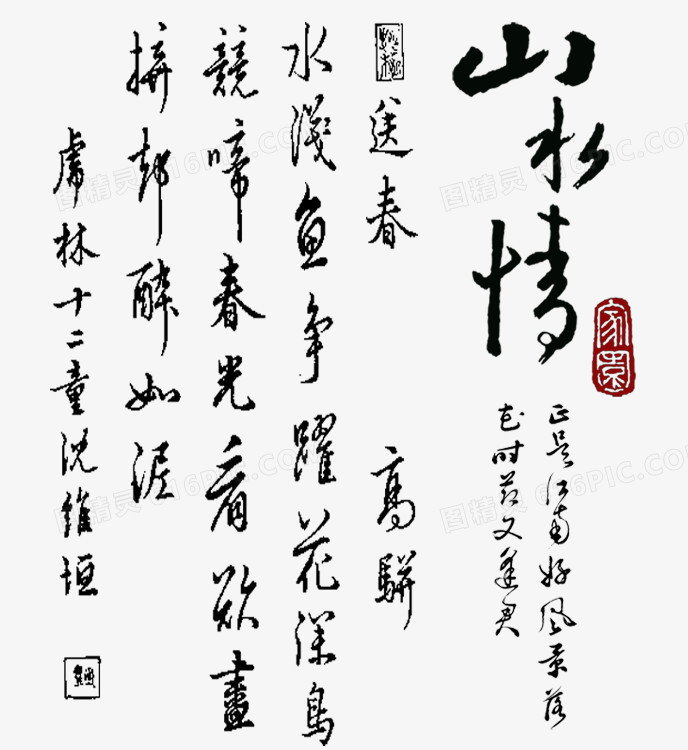 山水情
家園
正是江南好風景落
花时节又逢君
送春 高駢
水淺鱼争躍花深鳥
競啼春光看欲盡
拚却醉如泥
虎林十二童沈維垣
图精灵 616PIC.COM